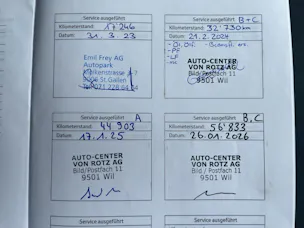 Service ausgeführt
Kilometerstand: 17'246
Datum: 31. 3. 23
Emil Frey AG
Autopark
9006 St. Gallen
Service ausgeführt B+C
Kilometerstand: 32'730 km
Datum: 21.2.2024
AUTO-CENTER
VON ROTZ AG
Bild/Postfach 11
9501 Wil
Service ausgeführt A
Kilometerstand: 44 903
Datum: 17.1.25
AUTO-CENTER
VON ROTZ AG
Bild/Postfach 11
9501 Wil
Service ausgeführt B,C
Kilometerstand: 56'833
Datum: 26.01.2026
AUTO-CENTER
VON ROTZ AG
Bild / Postfach 11
9501 Wil
Service ausgeführt
Service ausgeführt